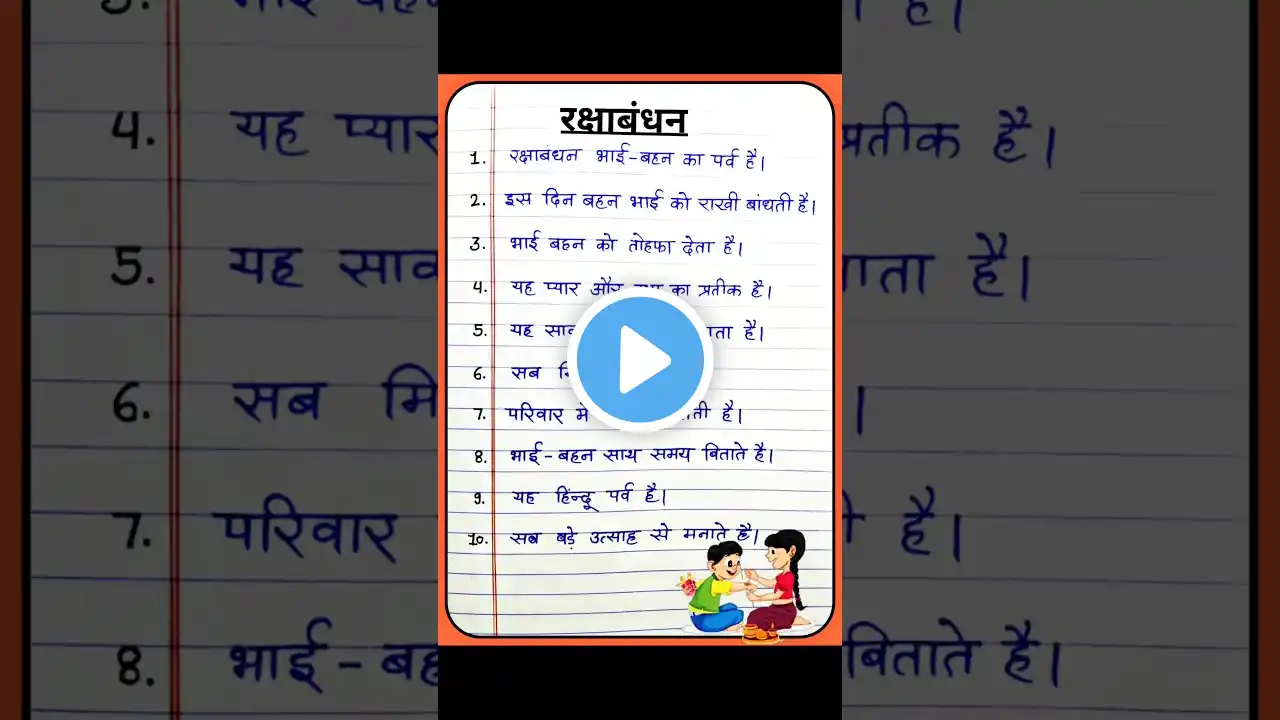 रक्षाबंधन
1. रक्षाबंधन भाई-बहन का पर्व है।
2. इस दिन बहन भाई को राखी बांधती है।
3. भाई बहन को तोहफा देता है।
4. यह प्यार और का प्रतीक है।
5. यह है।
6. सब
7. परिवार में है।
8. भाई-बहन साथ समय बिताते है।
9. यह हिन्दू पर्व है।
10. सब बड़े उत्साह से मनाते है।